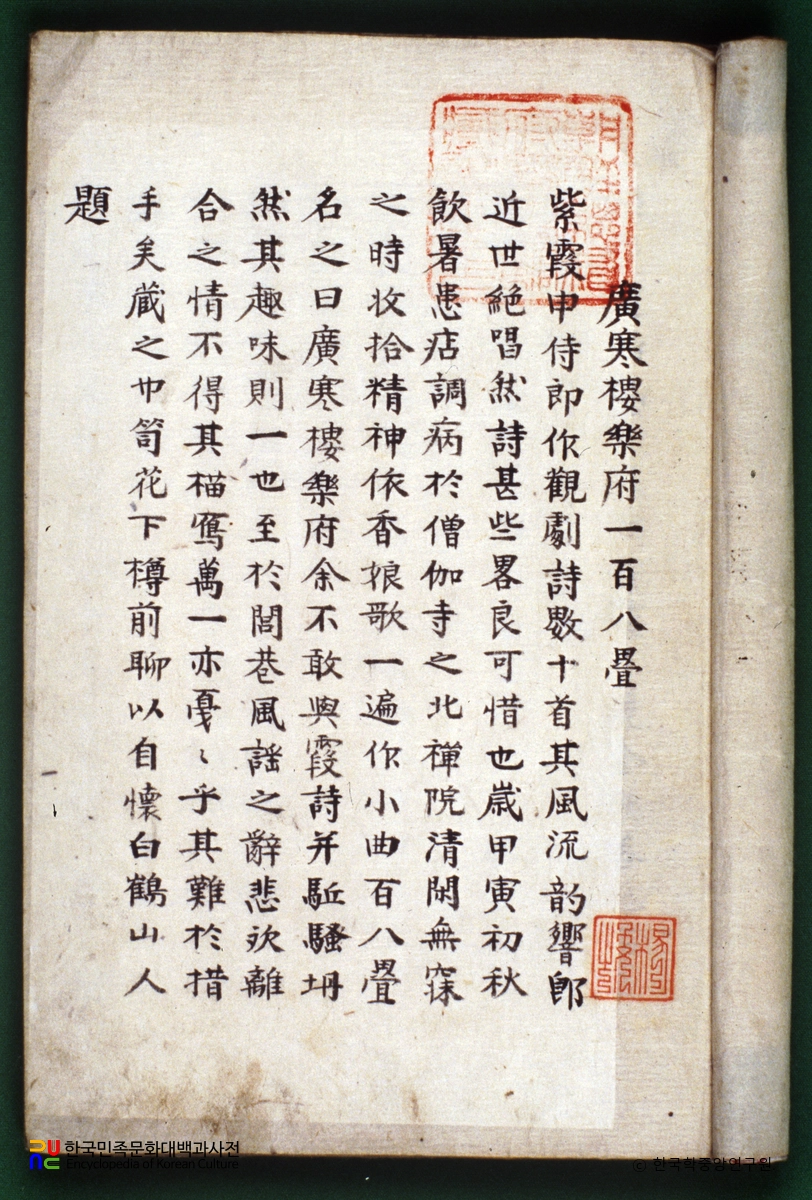 廣寒樓樂府一百八疊
紫霞申侍郎作觀劇詩數十首其風流韵響即
近世絶唱然詩甚些畧良可惜也歲甲寅初秋
飮暑患痁調病於僧伽寺之北禪院清閑無寐
之時收拾精神依香娘歌一遍作小曲百八疊
名之曰廣寒樓樂府余不敢與霞詩并駈騷坍
然其趣味則一也至於閭巷風謡之辭悲欢離
合之情不得其描寫萬一亦戛〻乎其難於措
手矣藏之巾笥花下樽前聊以自懷白鶴山人
題
한국민족문화대백과사전
Encyclopedia of Korean Culture
© 한국학중앙연구원